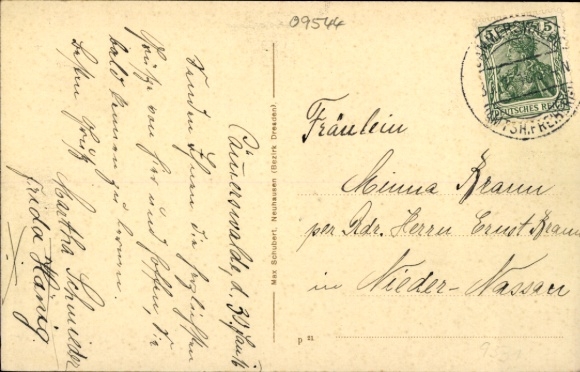 09544
Cämmerswalde, d. 30. 
Senden Ihnen die herzlichsten
Grüße von hier und hoffen, Sie
bald kennen zu lernen.
Besten Gruß
Martha Schneider
Frida Hänig.
Max Schubert, Neuhausen (Bezirk Dresden).
P 21
DEUTSCHES REICH
5
Fräulein
Minna Braun
per Adr. Herrn Ernst Braun
in Nieder-Nassau